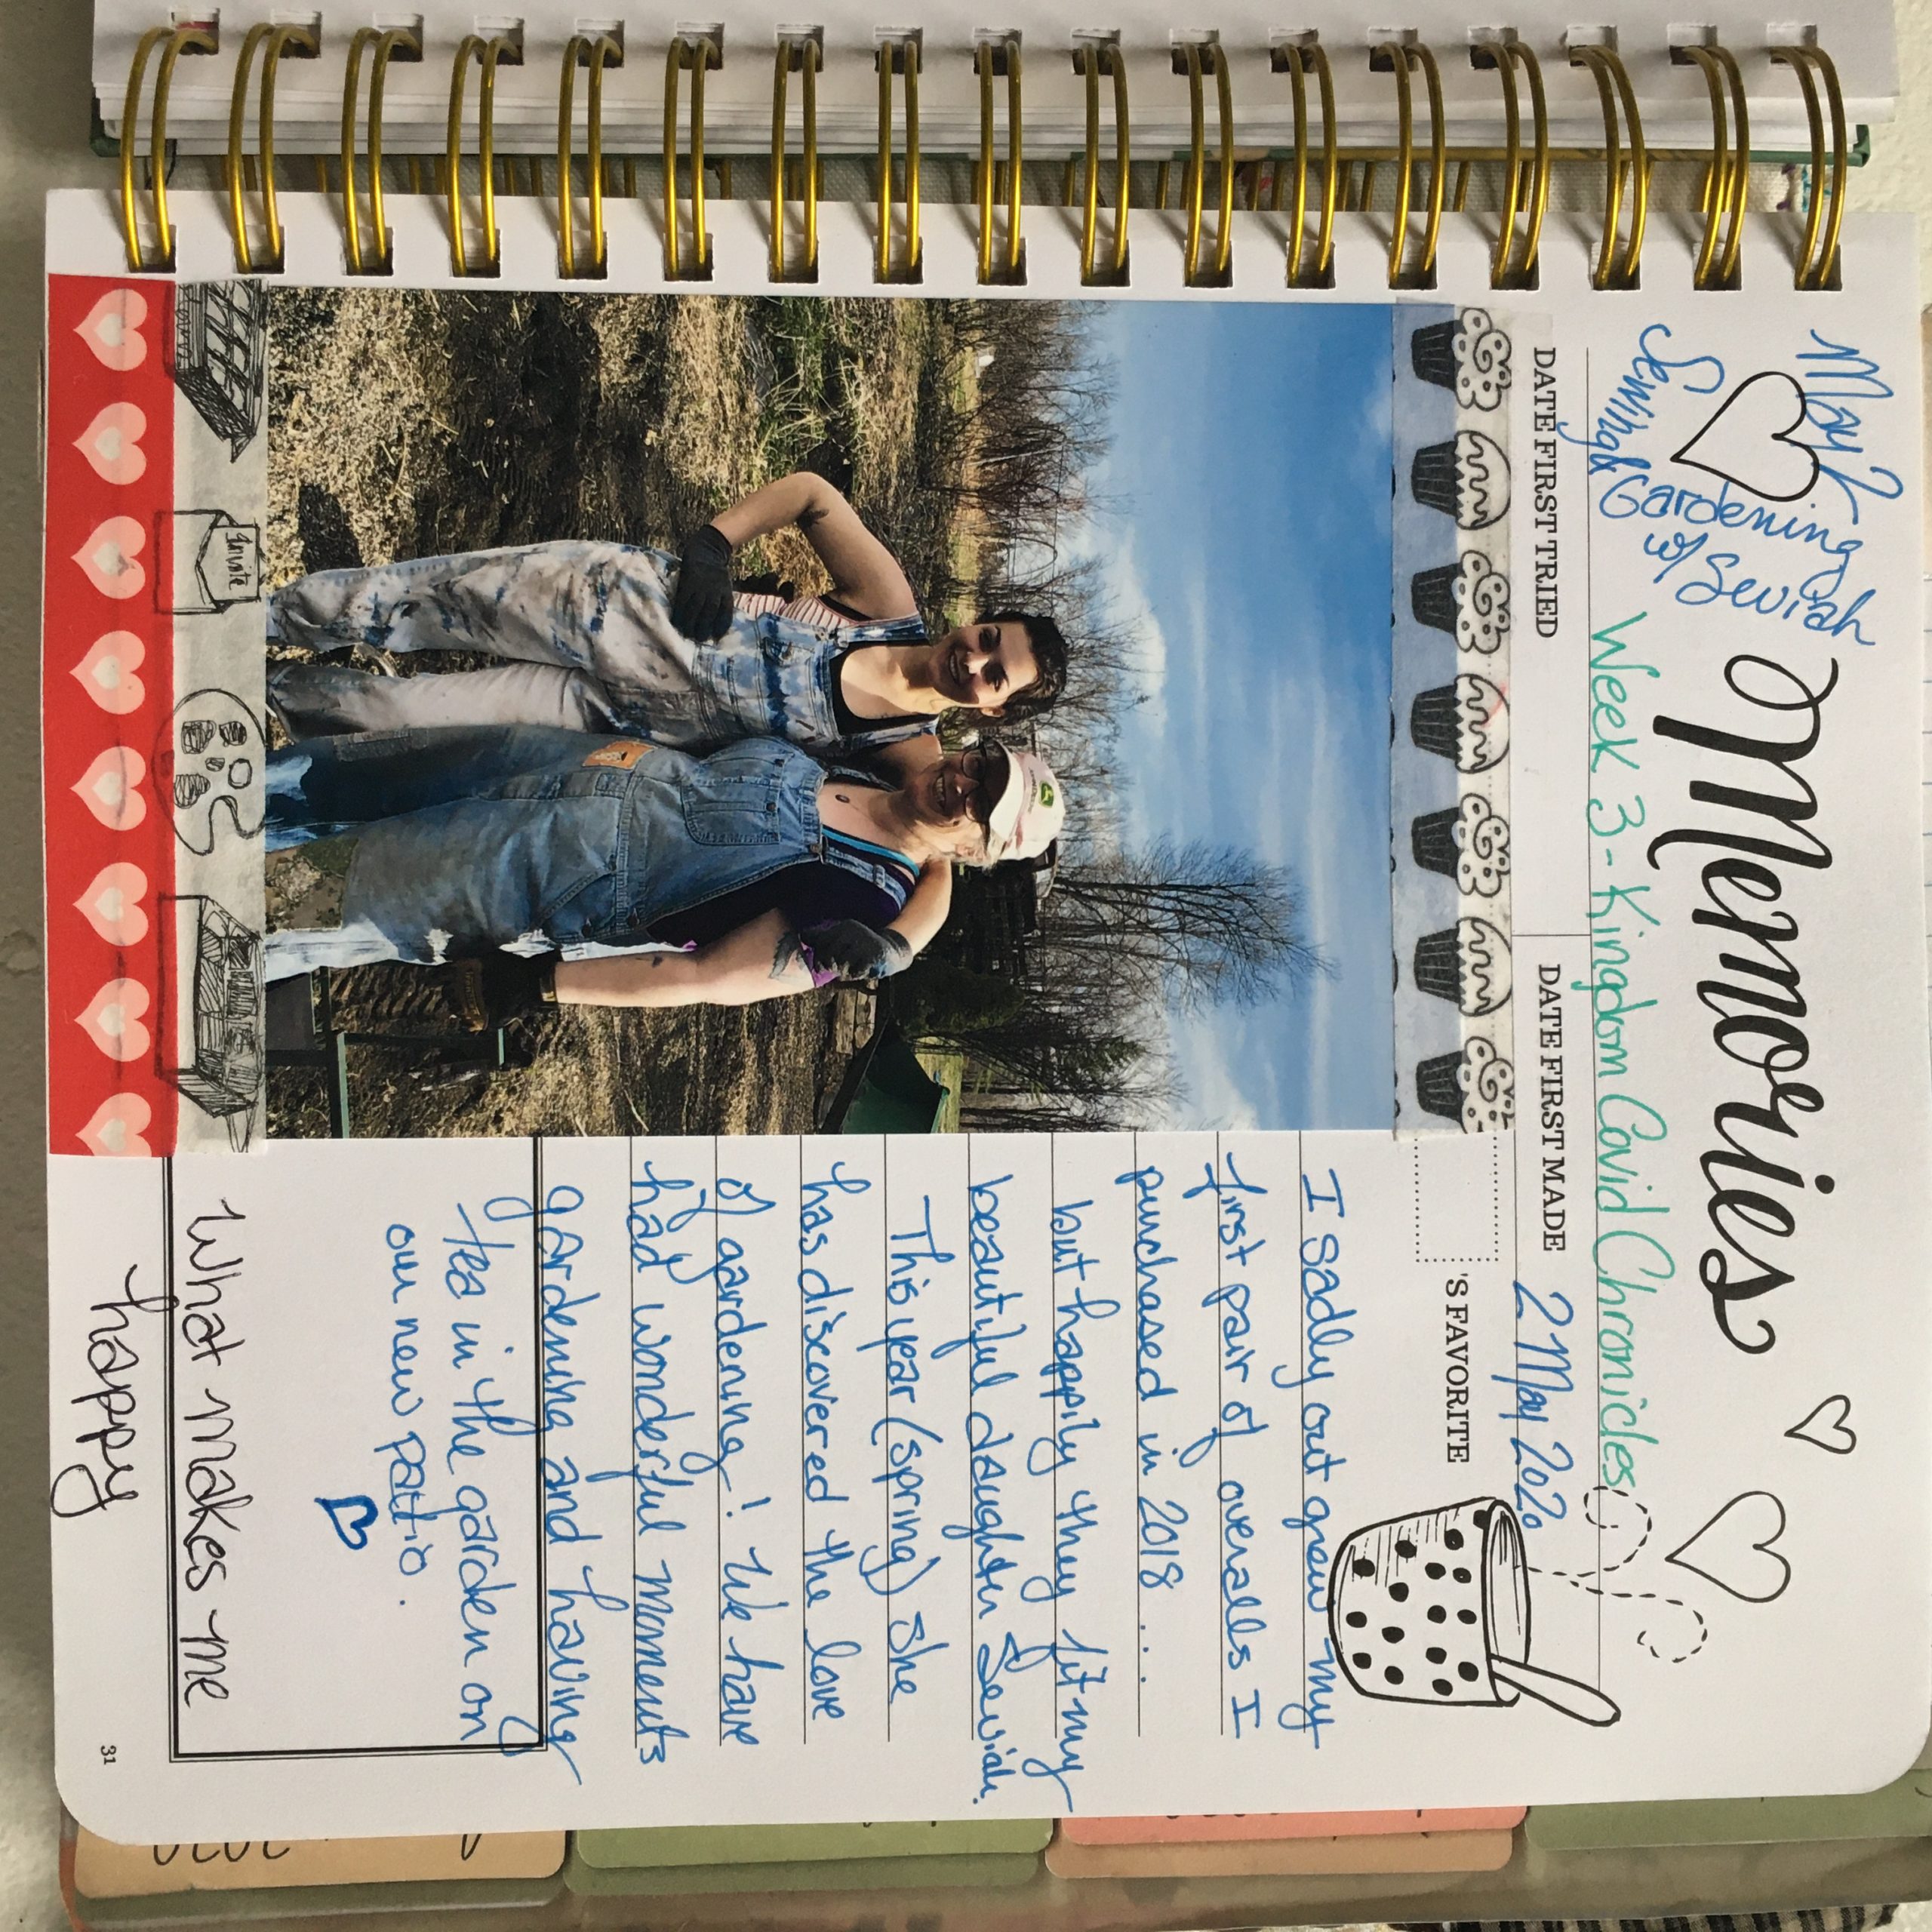 Memories
May 2
Sewing & Gardening
w/ Seviah
Week 3 - Kingdom Covid Chronicles
DATE FIRST TRIED
DATE FIRST MADE
2 May 2020
'S FAVORITE
I sadly out grew my
first pair of overalls I
purchased in 2018 ....
but happily they fit my
beautiful daughter Seviah.
This year (spring) she
has discovered the love
of gardening! We have
had wonderful moments
gardening and having
tea in the garden on
our new patio.
What makes me
happy
Invite
31
2020